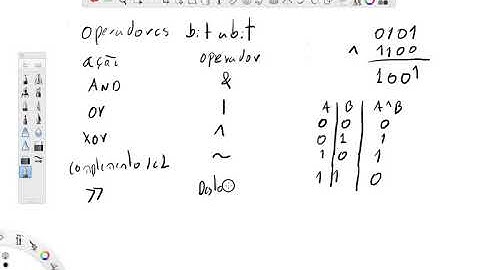 operadores bit a bit
ação operador
AND &
or |
xor ^
complemento de 1 ~
>>
0101
^ 1100
1001
A B A^B
0 0 0
0 1 1
1 0 1
1 1 0